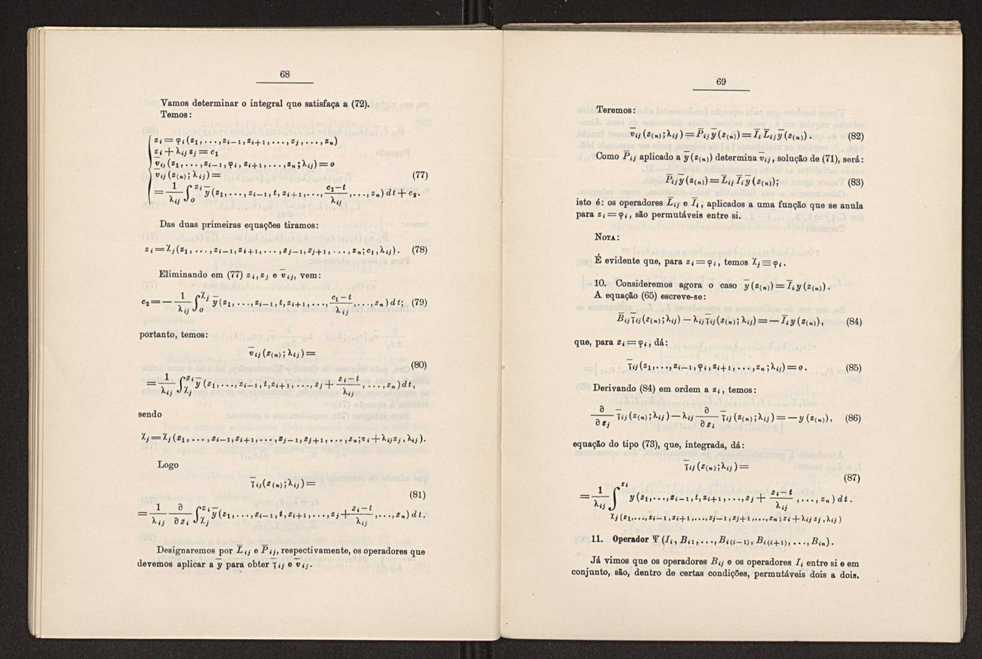 68
Vamos determinar o integral que satisfaça a (72).
Temos:
z_i = φ_i (z_1, ..., z_{i-1}, z_{i+1}, ..., z_j, ..., z_n)
z_i + λ_{ij} z_j = c_1
v̅_{ij} (z_1, ..., z_{i-1}, φ_i, z_{i+1}, ..., z_n; λ_{ij}) = o
v̅_{ij} (z_{(n)}; λ_{ij}) = (77)
= 1/λ_{ij} ∫_o^{z_i} y̅ (z_1, ..., z_{i-1}, t, z_{i+1}, ..., (c_1-t)/λ_{ij}, ..., z_n) dt + c_2.
Das duas primeiras equações tiramos:
z_i = χ_j (z_1, ..., z_{i-1}, z_{i+1}, ..., z_{j-1}, z_{j+1}, ..., z_n; c_1, λ_{ij}). (78)
Eliminando em (77) z_i, z_j e v̅_{ij}, vem:
c_2 = - 1/λ_{ij} ∫_o^{χ_j} y̅ (z_1, ..., z_{i-1}, t, z_{i+1}, ..., (c_1-t)/λ_{ij}, ..., z_n) dt; (79)
portanto, temos:
v̅_{ij} (z_{(n)}; λ_{ij}) =
(80)
= 1/λ_{ij} ∫_{χ_j}^{z_i} y̅ (z_1, ..., z_{i-1}, t, z_{i+1}, ..., z_j + (z_i-t)/λ_{ij}, ..., z_n) dt,
sendo
χ_j = χ_j (z_1, ..., z_{i-1}, z_{i+1}, ..., z_{j-1}, z_{j+1}, ..., z_n; z_i + λ_{ij} z_j, λ_{ij}).
Logo
γ̅_{ij} (z_{(n)}; λ_{ij}) =
(81)
= 1/λ_{ij} ∂/∂z_i ∫_{χ_j}^{z_i} y̅ (z_1, ..., z_{i-1}, t, z_{i+1}, ..., z_j + (z_i-t)/λ_{ij}, ..., z_n) dt.
Designaremos por L̅_{ij} e P̅_{ij}, respectivamente, os operadores que
devemos aplicar a y̅ para obter γ̅_{ij} e v̅_{ij}.
69
Teremos:
v̅_{ij} (z_{(n)}; λ_{ij}) = P̅_{ij} y̅ (z_{(n)}) = I̅_i L̅_{ij} y̅ (z_{(n)}). (82)
Como P̅_{ij} aplicado a y̅ (z_{(n)}) determina v̅_{ij}, solução de (71), será:
P̅_{ij} y̅ (z_{(n)}) = L̅_{ij} I̅_i y̅ (z_{(n)}); (83)
isto é: os operadores L̅_{ij} e I̅_i, aplicados a uma função que se anula
para z_i = φ_i, são permutáveis entre si.
NOTA:
É evidente que, para z_i = φ_i, temos χ_j ≡ φ_i.
10. Consideremos agora o caso y̅ (z_{(n)}) = I̅_i y (z_{(n)}).
A equação (65) escreve-se:
B̅_{ij} γ̅_{ij} (z_{(n)}; λ_{ij}) - λ_{ij} γ̅_{ij} (z_{(n)}; λ_{ij}) = - I̅_i y (z_{(n)}), (84)
que, para z_i = φ_i, dá:
γ̅_{ij} (z_1, ..., z_{i-1}, φ_i, z_{i+1}, ..., z_n; λ_{ij}) = o. (85)
Derivando (84) em ordem a z_i, temos:
∂/∂z_j γ̅_{ij} (z_{(n)}; λ_{ij}) - λ_{ij} ∂/∂z_i γ̅_{ij} (z_{(n)}; λ_{ij}) = - y (z_{(n)}), (86)
equação do tipo (73), que, integrada, dá:
γ̅_{ij} (z_{(n)}; λ_{ij}) =
(87)
= 1/λ_{ij} ∫^{z_i} y (z_1, ..., z_{i-1}, t, z_{i+1}, ..., z_j + (z_i-t)/λ_{ij}, ..., z_n) dt.
χ_j (z_1, ..., z_{i-1}, z_{i+1}, ..., z_{j-1}, z_{j+1}, ..., z_n; z_i + λ_{ij} z_j, λ_{ij})
11. Operador Ψ (I_i, B_{i1}, ..., B_{i(i-1)}, B_{i(i+1)}, ..., B_{in}).
Já vimos que os operadores B_{ij} e os operadores I_i entre si e em
conjunto, são, dentro de certas condições, permutáveis dois a dois.